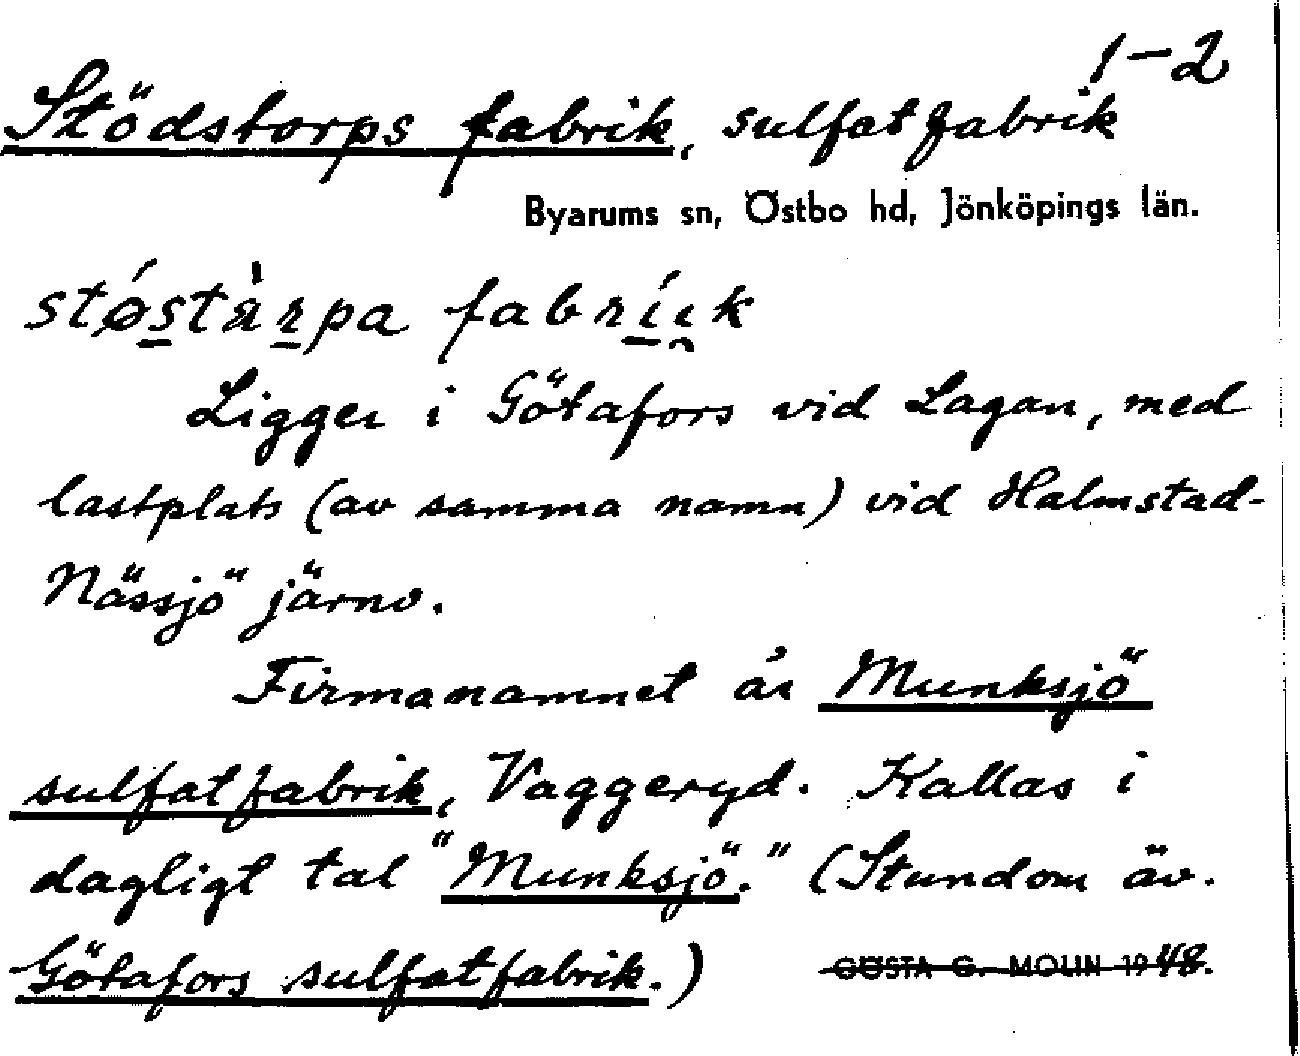 1-2
Stödstorps fabrik, sulfatfabrik
Byarums sn, Östbo hd, Jönköpings län.
fabrik
Ligger i Götafors vid Lagan, med
lastplats (av samma namn) vid Halmstad-
Nässjö järnv.
Firmanamnet är Munksjö
sulfatfabrik, Vaggeryd. Kallas i
dagligt tal "Munksjö." (Stundom äv.
Götafors sulfatfabrik.)
GÖSTA G. MOLIN 1948.